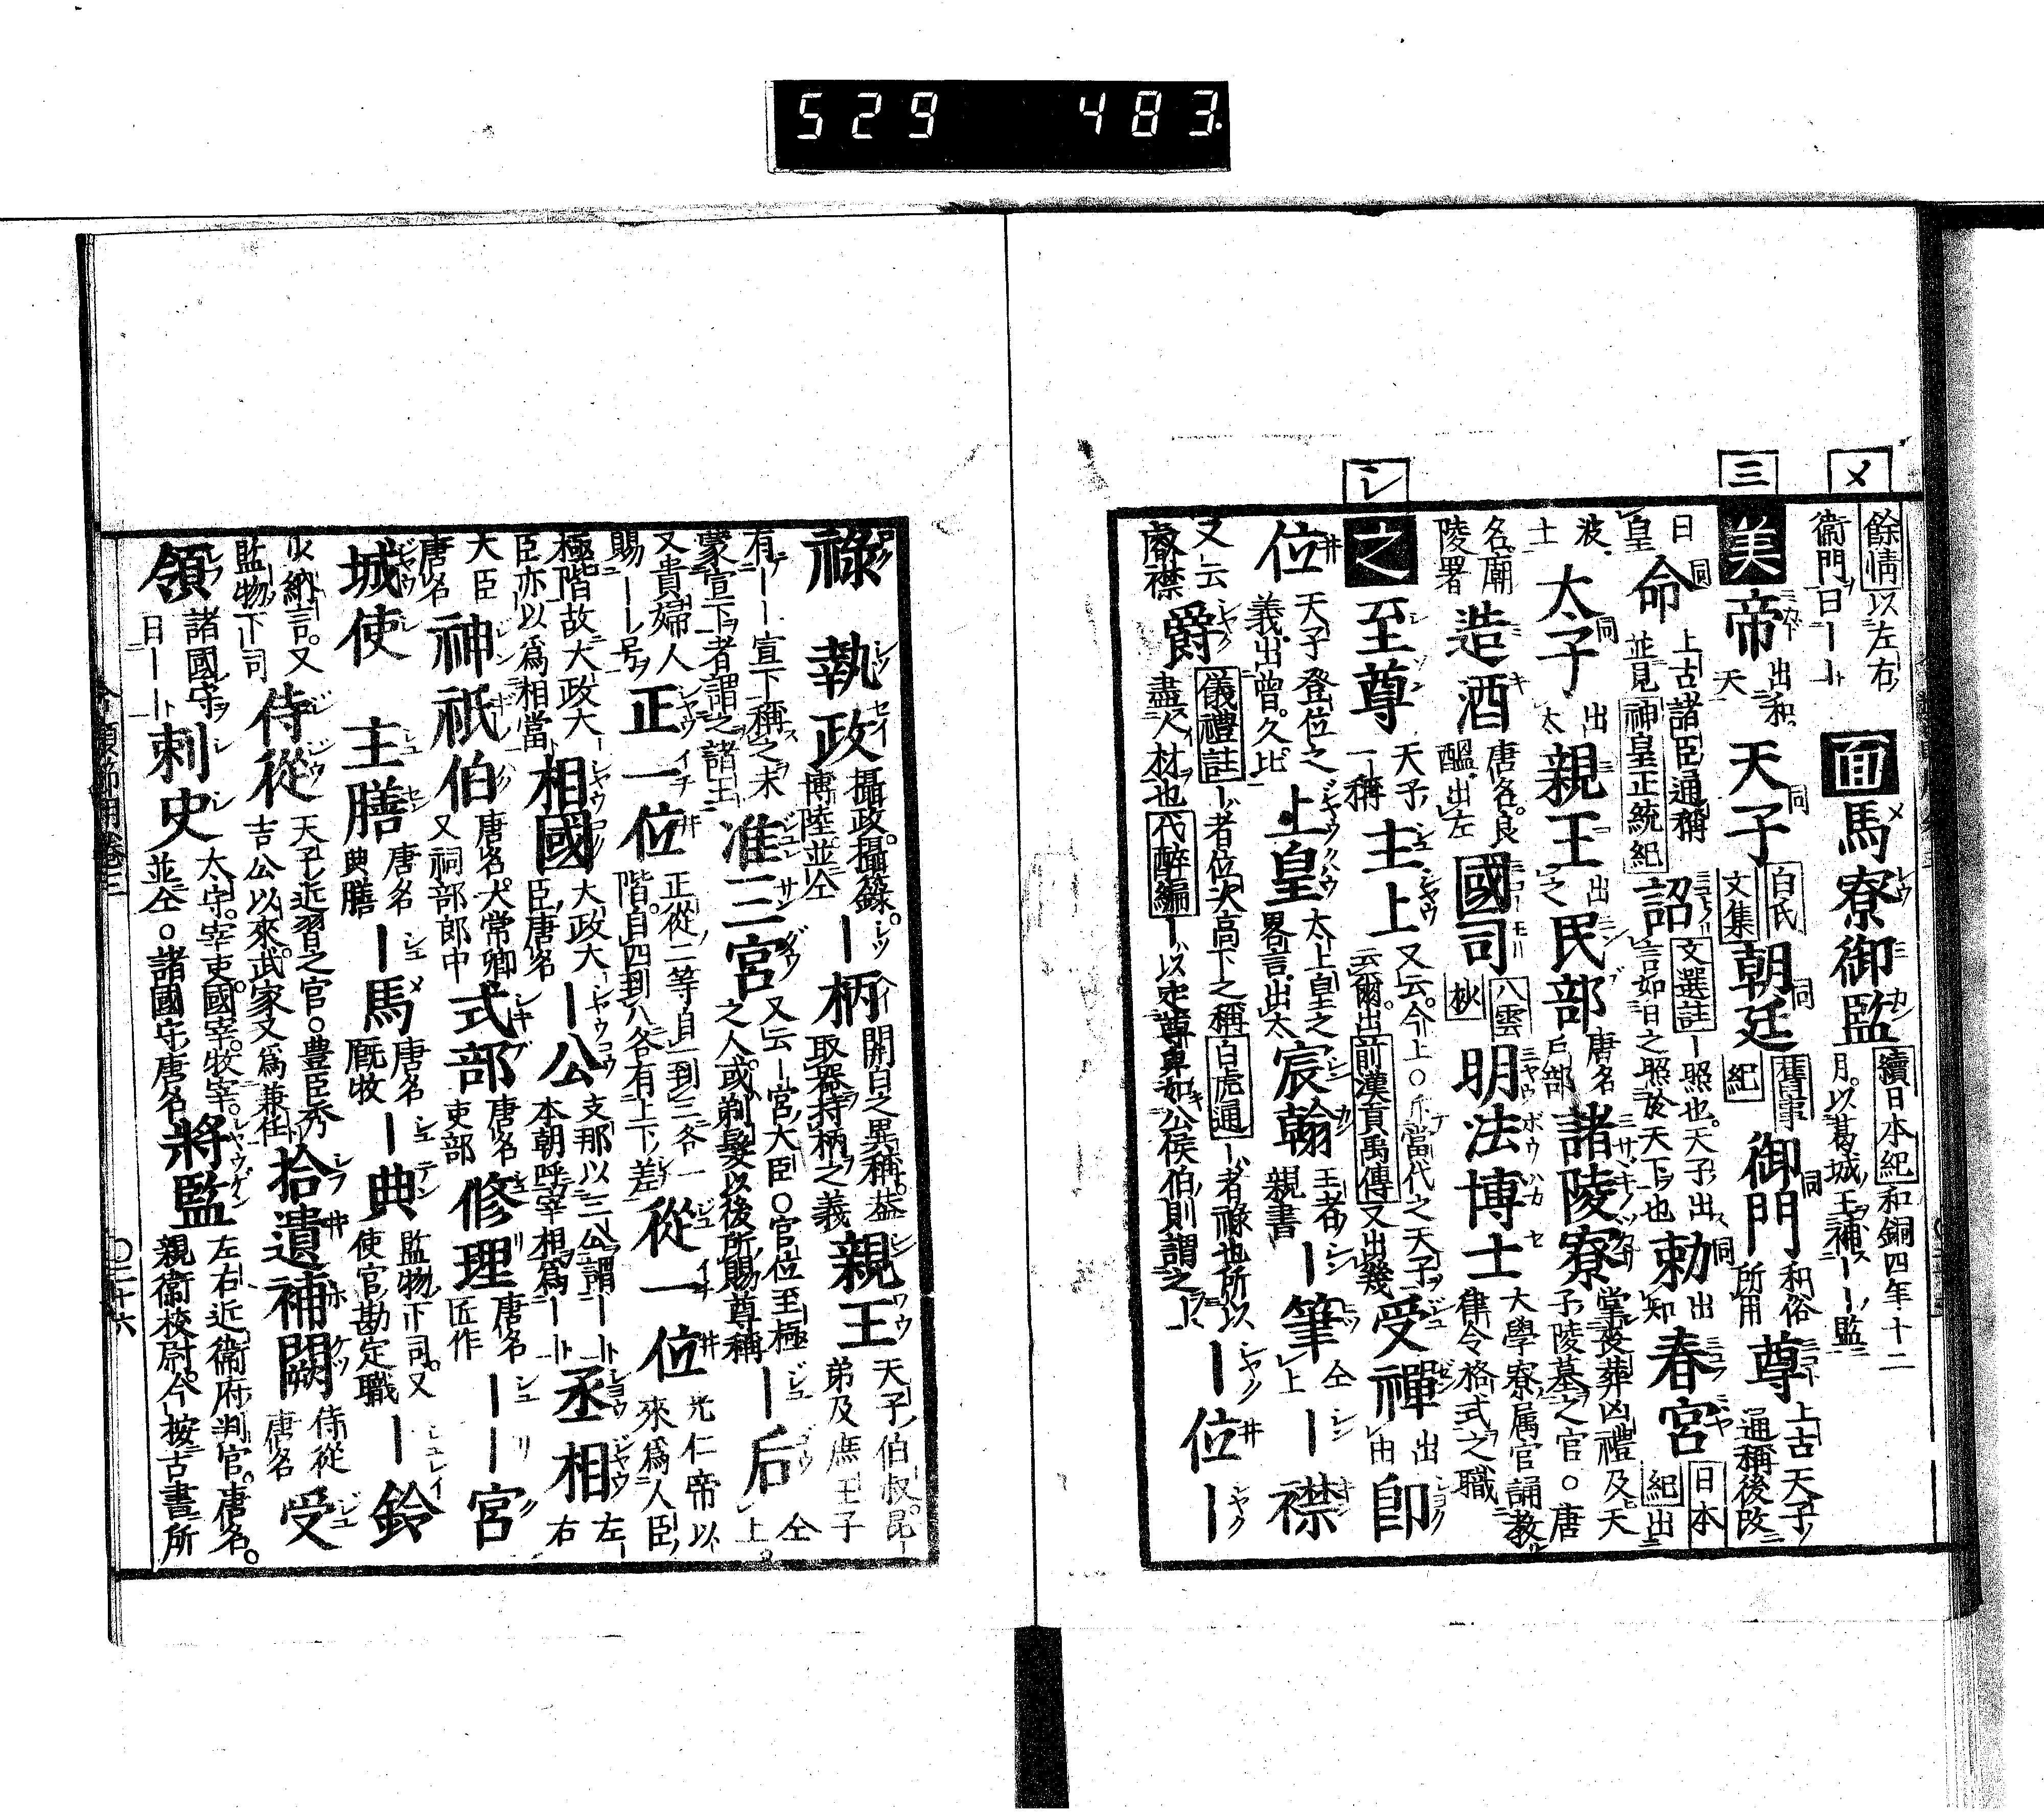 529 483.
メ
三
シ
餘情以左右
衞門曰ーー
面馬寮御監 續日本紀和銅四年十二
月以葛城王補ーー監
美帝 出和
天
天子 白氏
文集
朝廷 舊事
紀
御門 和俗
所用
尊 上古天子
通稱後改
曰
皇
命 上古諸臣通稱
並見神皇正統紀
詔 文選註ー照也天子出
言如日之照於天下也
勅 出
知
春宮 日本
紀出
波
士
太子 出
太
親王 出
之
民部 唐名
戶部
諸陵寮 掌喪葬凶禮及天
子陵墓之官○唐
名廟
陵署
造酒 唐名良
醞出左
國司 八雲
秋
明法博士 大學寮属官誦教
律令格式之職
之至尊 天子
一稱
主上 又云今上○斥當代之天子
云爾出前漢貢禹傳又出幾
受禪 出
由
卽
位 天子登位之
義出曾久比
上皇 太上皇之
畧言出太
宸翰 王者
親書
ー筆 仝
上
ー襟
又云
睿襟
爵 儀禮註ー者位次高下之稱白虎通ー者祿也所以
盡人材也代醉編ー以定尊卑如公侯伯則謂之ー
ー位ー
祿 執政 攝政攝錄
博陸並仝
ー柄 關白之異稱葢
取器持柄之義
親王 天子伯叔昆ー
弟及庶王子
有ーー宣下稱之未
蒙宣下者謂之諸王
准三宮 又云ー宮大臣○官位至極
之人或剃髮以後所賜尊稱
ー后 仝
上
又貴婦人
賜ーー号
正一位 正從二等自一到三各一
階自四到八各有上下差
從一位 光仁帝以
來爲人臣
極階故大政大ー
臣亦以爲相當
相國 大政大ー
臣唐名
ー公 支那以三公謂ーー
本朝呼宰相爲ーー
丞相 左ー
右
大臣
唐名
神祇伯 唐名大常卿
又祠部郎中
式部 唐名
吏部
修理 唐名
匠作
ーー宮
城使 主膳 唐名
典膳
ー馬 唐名
厩牧
ー典 監物下司又
使官勘定職
ー鈴
少納言又
監物下司
侍從 天子近習之官○豊臣秀
吉公以來武家又爲兼任
拾遺補闕 侍從
唐名
受
領 諸國守
曰ーー
刺史 太守宰吏國宰牧宰
並仝○諸國守唐名
將監 左右近衞府判官唐名
親衞校尉今按古書所
合類節用卷三
○二十六